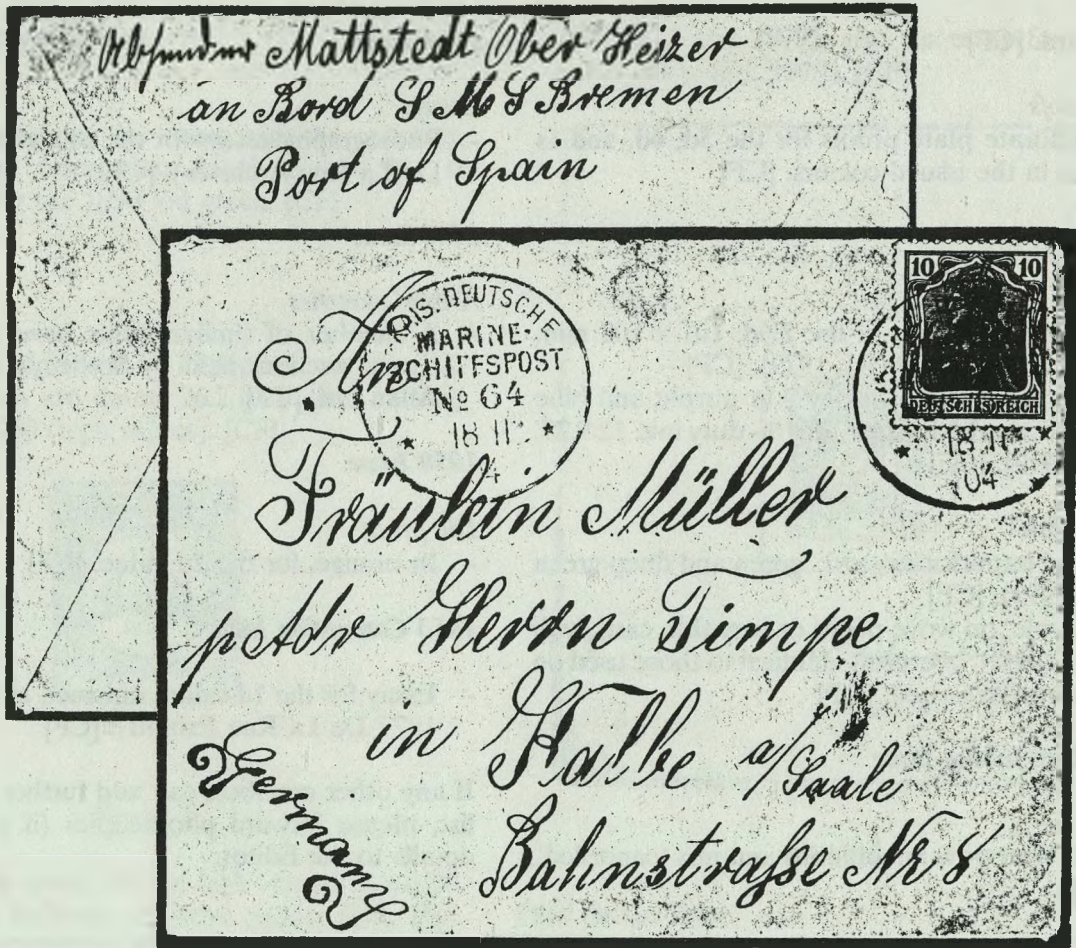 Absender Mattstedt Ober Heizer
an Bord S M S Bremen
Port of Spain
KAIS. DEUTSCHE
MARINE-
SCHIFFSPOST
No 64
18 11
4
10 10
DEUTSCHES REICH
18 11
04
An
Fräulein Müller
p Adr Herrn Timpe
in Kalbe a/Saale
Bahnstraße Nr 8
Germany